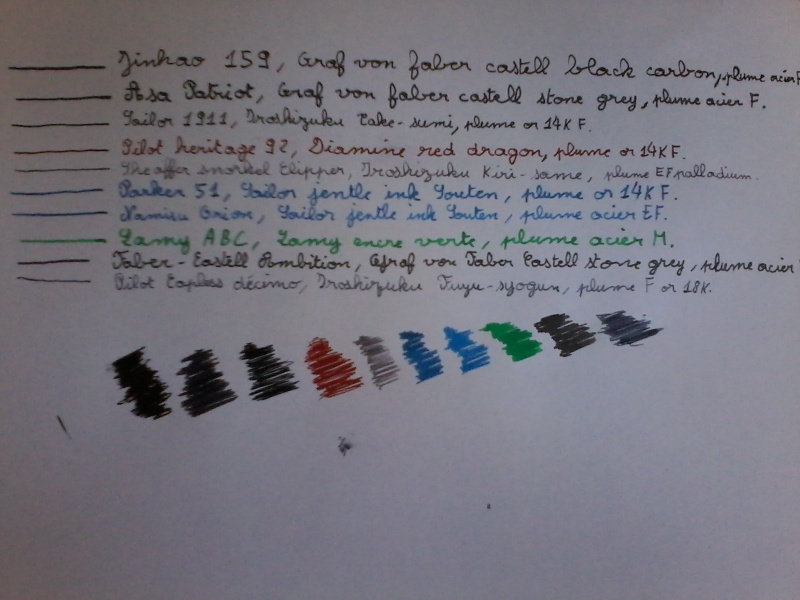 Jinhao 159, Graf von faber castell black carbon, plume acier F
Asa Patriot, Graf von faber castell stone grey, plume acier F.
Sailor 1911, Iroshizuku Take-sumi, plume or 14K F.
Pilot heritage 92, Diamine red dragon, plume or 14K F.
Sheaffer snorkel Clipper, Iroshizuku Kiri-same, plume EF palladium.
Parker 51, Sailor jentle ink Souten, plume or 14K F.
Namisu Orion, Sailor jentle ink Souten, plume acier EF.
Lamy ABC, Lamy encre verte, plume acier M.
Faber-Castell Ambition, Graf von Faber Castell stone grey, plume acier
Pilot Capless décimo, Iroshizuku Fuyu-syogun, plume F or 18K.